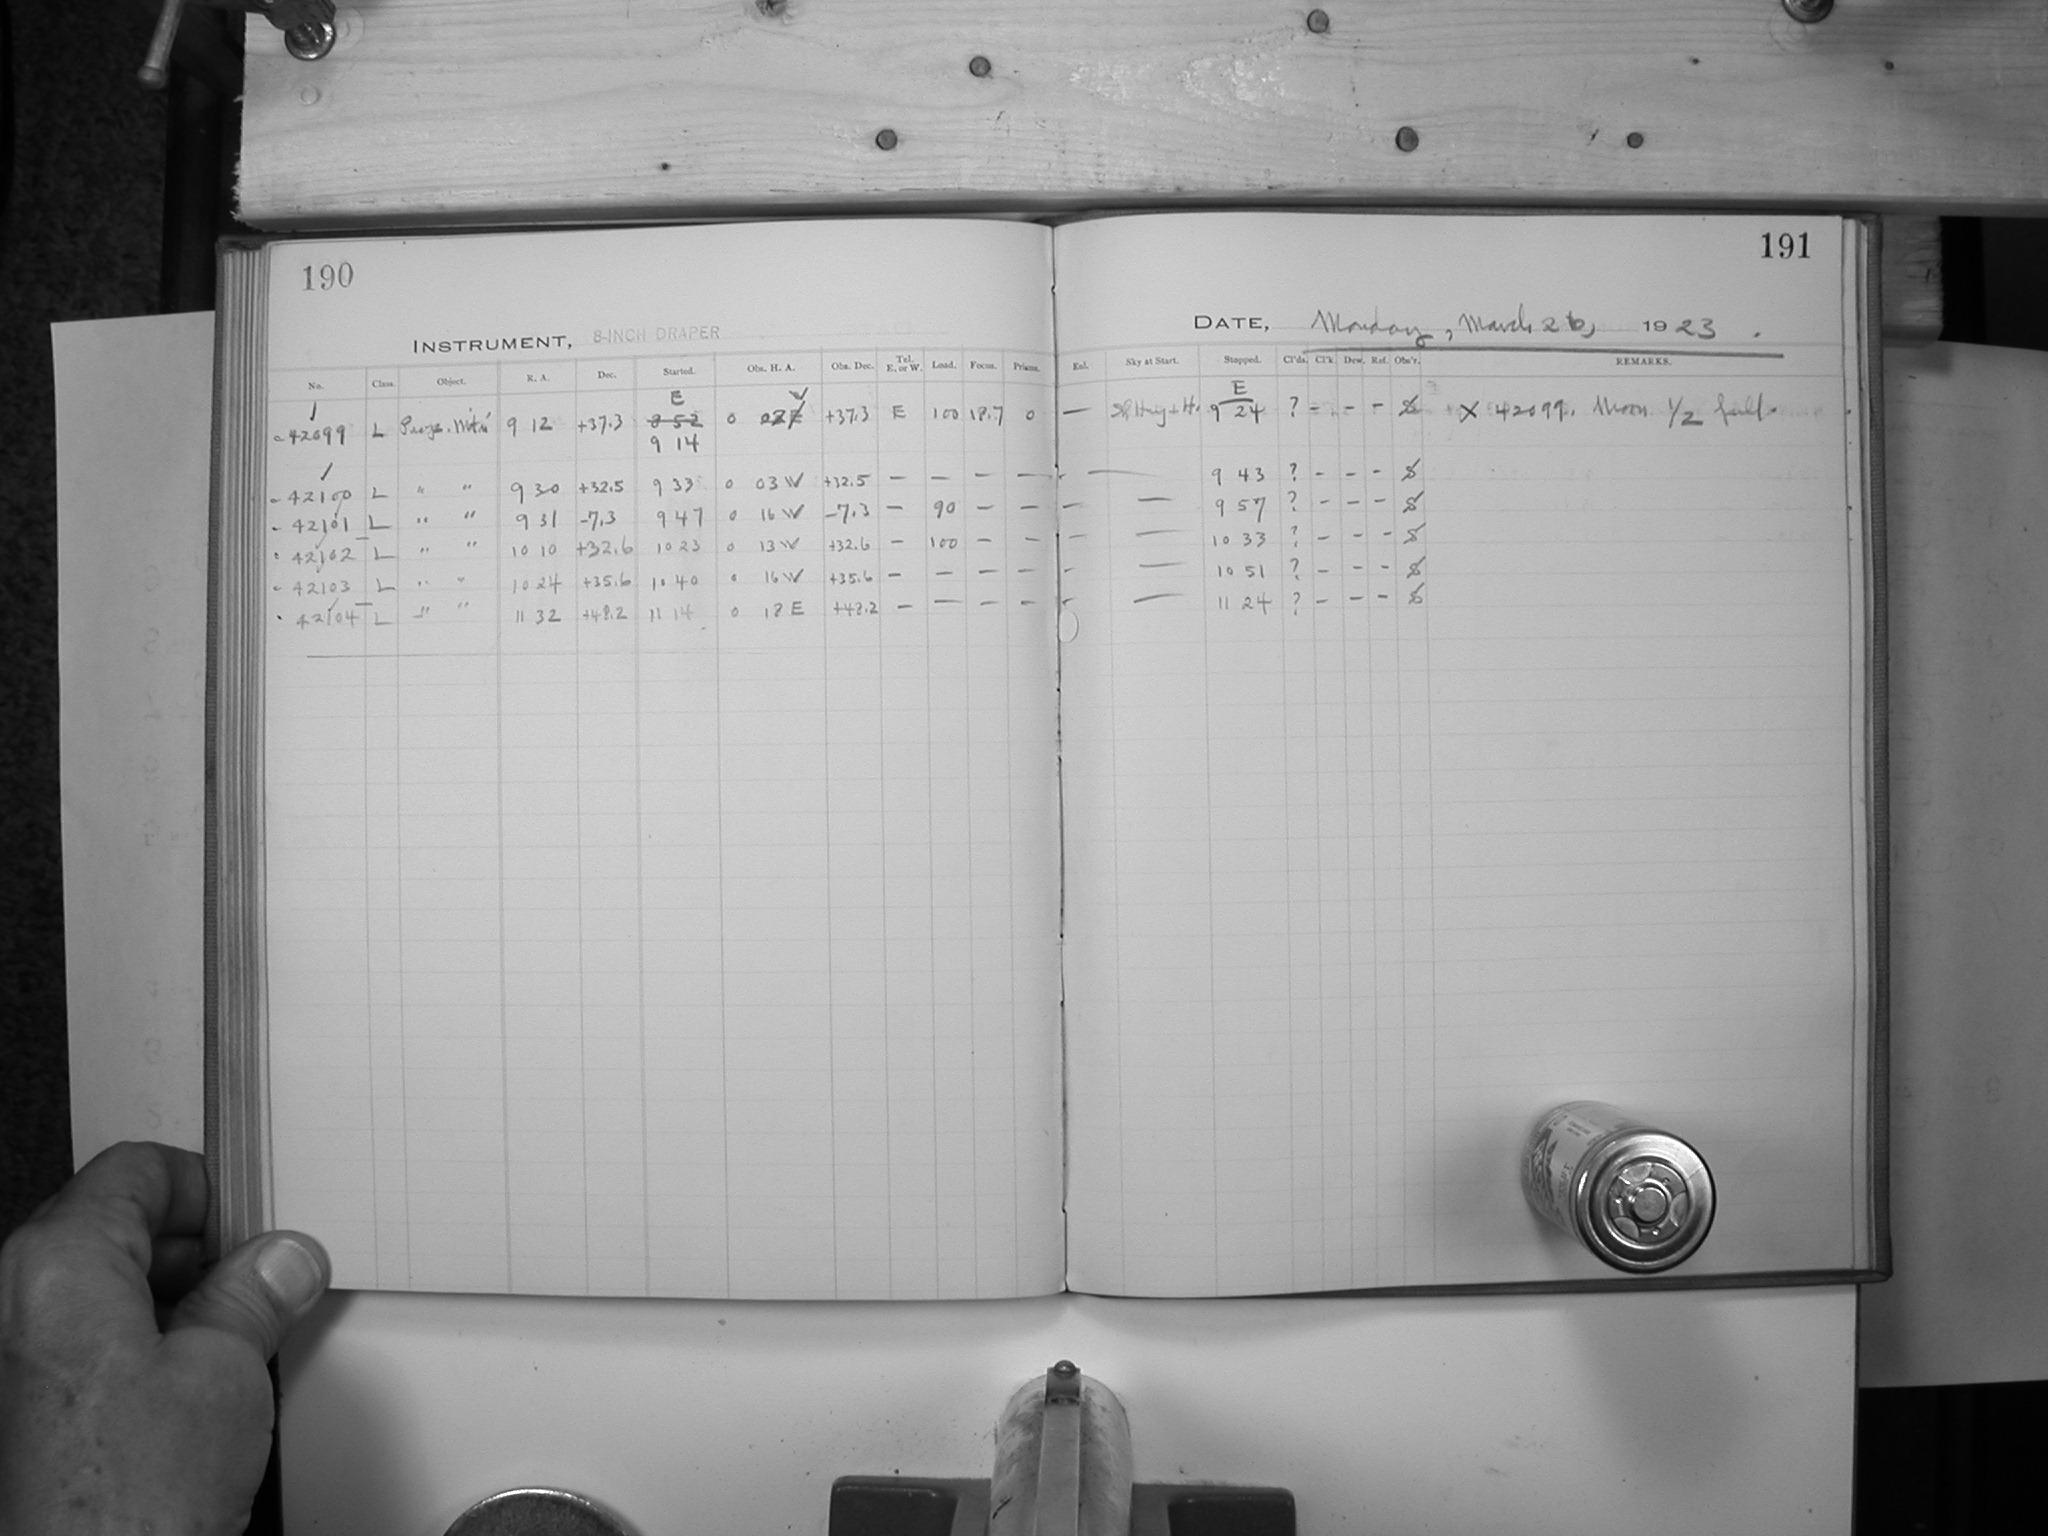 190
INSTRUMENT, 8-INCH DRAPER
No. Class. Object. R. A. Dec. Started. Obs. H. A. Obs. Dec. Tel. E. or W. Load. Focus. Prisms.
E
42099 L 9 12 +37.3 8 52 0 W +37.3 E 100 18.7 0
9 14
42100 L " " 9 30 +32.5 9 33 0 03 W +32.5 — — — —
42101 L " " 9 31 -7.3 9 47 0 16 W -7.3 — 90 — —
42102 L " " 10 10 +32.6 10 23 0 13 W +32.6 — 100 — —
42103 L " " 10 24 +35.6 10 40 0 16 W +35.6 — — — —
42104 L " " 11 32 +48.2 11 14 0 18 E +48.2 — — — —
191
DATE, Monday, March 26, 1923.
Enl. Sky at Start. Stopped. Cl'ds. Cl'k. Dew. Ref. Obs'r. REMARKS.
E
— 9 24 ? - - - S X 42099. Moon 1/2 full.
- — 9 43 ? - - - S
- — 9 57 ? - - - S
- — 10 33 ? - - - S
- — 10 51 ? - - - S
- — 11 24 ? - - - S